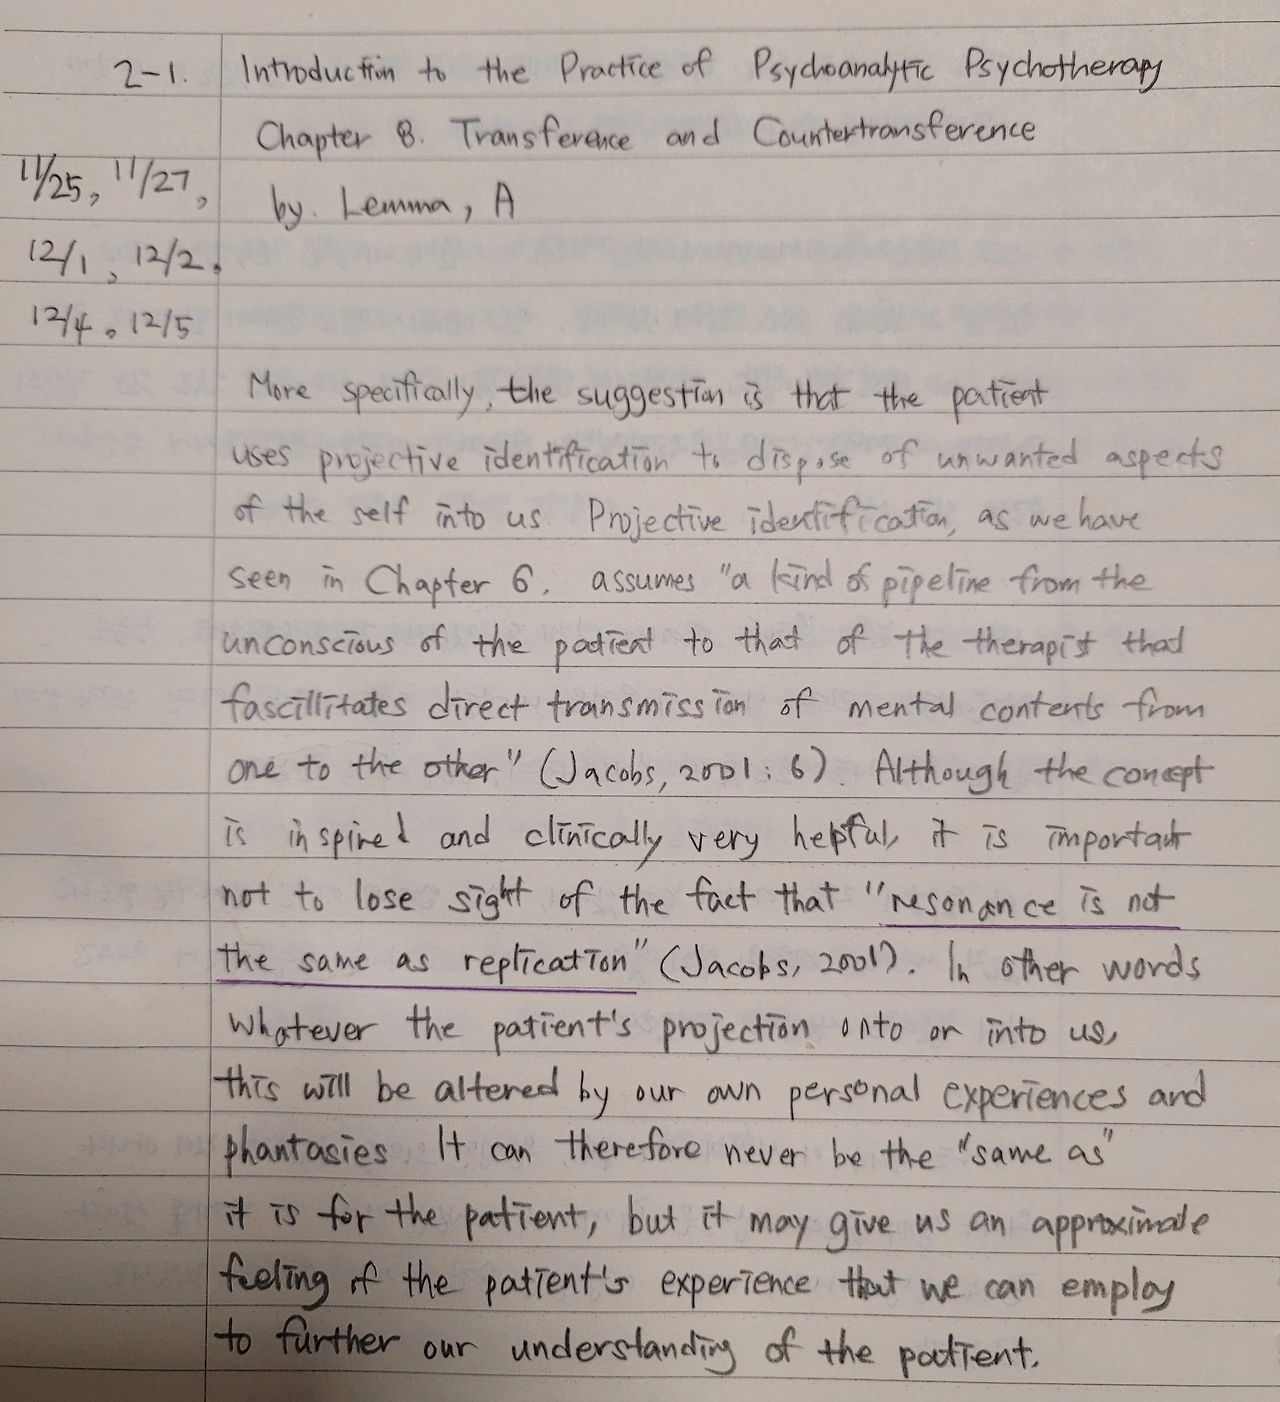 2-1. Introduction to the Practice of Psychoanalytic Psychotherapy
Chapter 8. Transference and Countertransference
11/25, 11/27,
by. Lemma, A
12/1, 12/2,
12/4, 12/5
More specifically, the suggestion is that the patient
uses projective identification to dispose of unwanted aspects
of the self into us. Projective identification, as we have
seen in Chapter 6, assumes "a kind of pipeline from the
unconscious of the patient to that of the therapist that
fascillitates direct transmission of mental contents from
one to the other" (Jacobs, 2001 : 6). Although the concept
is inspired and clinically very helpful, it is important
not to lose sight of the fact that "resonance is not
the same as replication" (Jacobs, 2001). In other words
whatever the patient's projection onto or into us,
this will be altered by our own personal experiences and
phantasies. It can therefore never be the "same as"
it is for the patient, but it may give us an approximate
feeling of the patient's experience that we can employ
to further our understanding of the patient.